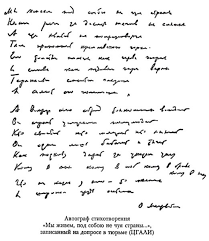 Мы живем под собою не чуя страны
Наши речи за десять шагов не слышны
А где хватит на полразговорца
Там припомнят кремлевского горца
Его толстые пальцы как черви жирны
И слова как пудовые гири верны
Тараканьи смеются глазища
И сияют его голенища
А вокруг его сброд тонкошеих вождей
Он играет услугами полулюдей
Кто свистит кто мяучит кто хнычет
Он один лишь бабачит и тычет
Как подкову дарит за указом указ
Кому в пах кому в лоб кому в бровь кому в глаз
Что ни казнь у него то малина
И широкая грудь осетина
О. Мандельштам
Автограф стихотворения
«Мы живем, под собою не чуя страны...»,
записанный на допросе в тюрьме (ЦГАЛИ)